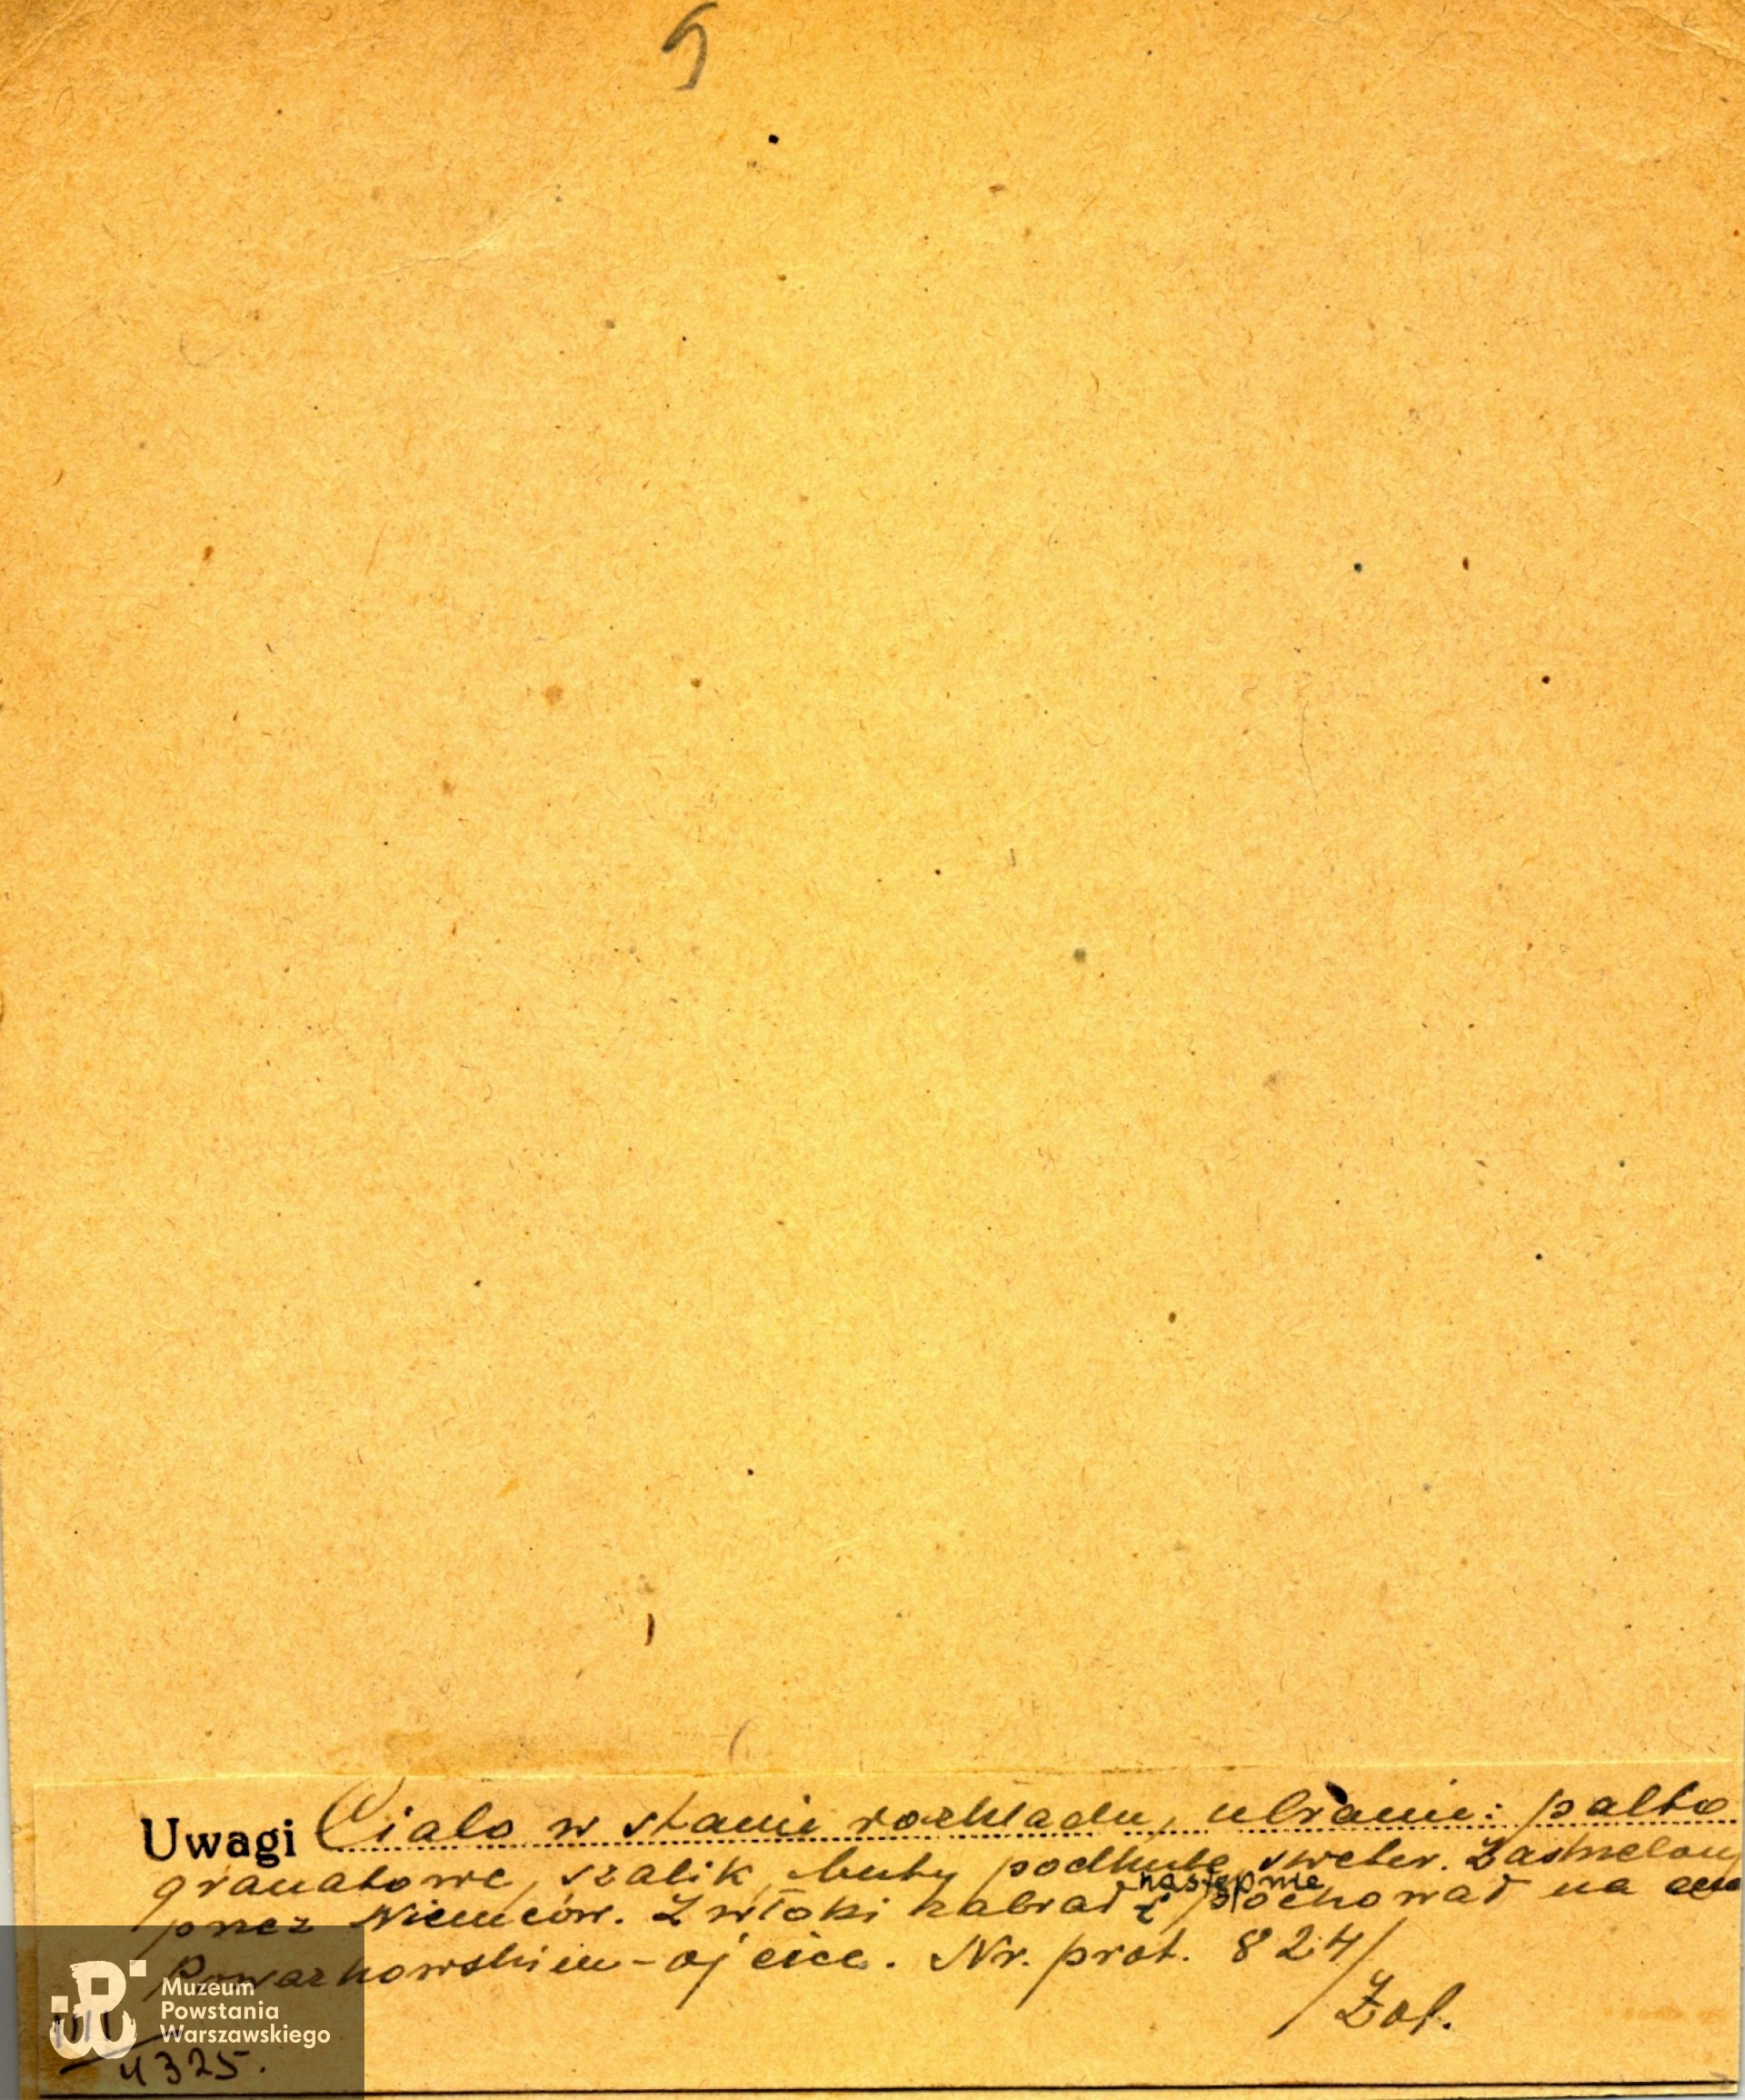 5
Uwagi Ciało w stanie rozkładu, ubranie: palto
granatowe, szalik, buty podkute, sweter. Zastrzelony
przez Niemców. Zwłoki zabrał i następnie pochował na cm
Powązkowskim - ojciec. Nr. prot. 824/
/Żol.
4325.
Muzeum
Powstania
Warszawskiego